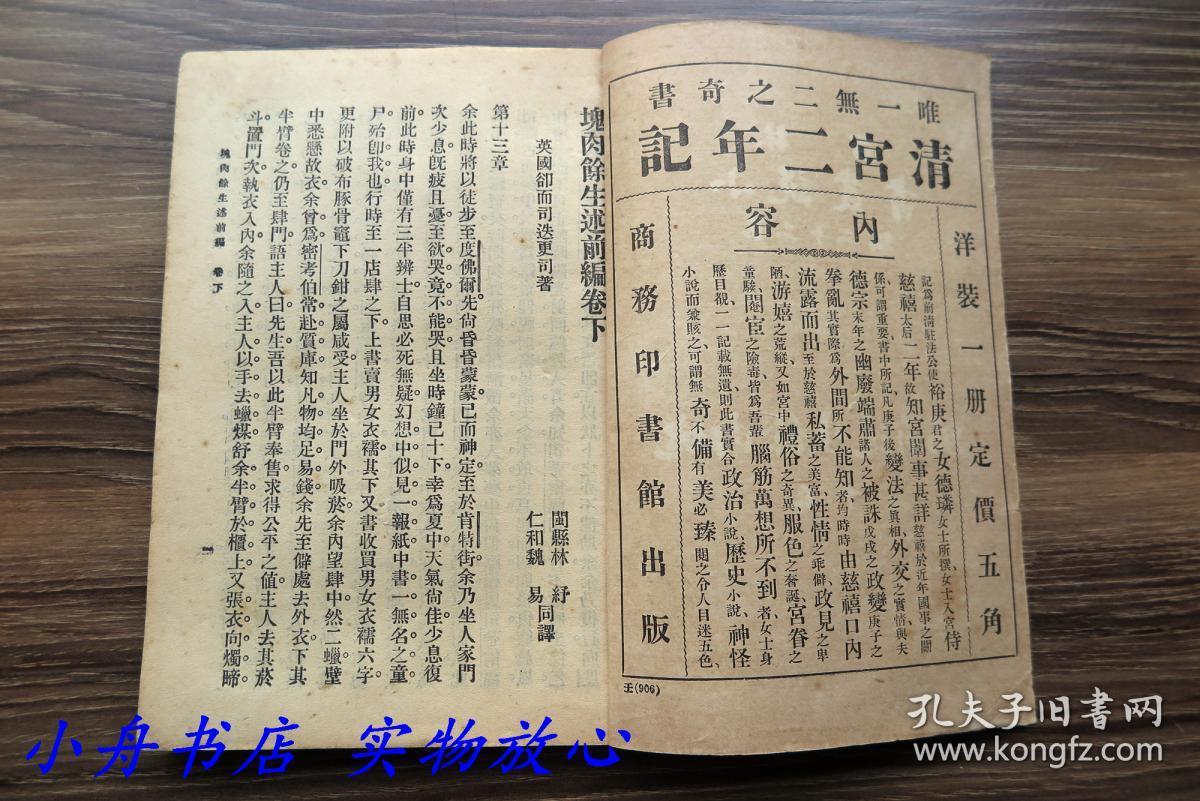 唯一無二之奇書
清宮二年記
內容
洋裝一册定價五角
記爲前清駐法公使裕庚君之女德璘女士所撰、女士入宮侍
慈禧太后二年故知宮闈事甚詳慈禧於近年國事之關
係可謂重要書中所記凡庚子後變法之眞相、外交之實情與夫
德宗末年之幽廢端肅諸人之被誅戊戌之政變庚子之
拳亂其實際爲外間所不能知者均時時由慈禧口內
流露而出至於慈禧私蓄之美富、性情之乖僻、政見之卑
陋、游嬉之荒縱又如宮中禮俗之奇異、服色之奢誕、宮眷之
童騃、閹宦之險毒皆爲吾輩腦筋萬想所不到者女士身
歷目覩一一記載無遺則此書實合政治小說、歷史小說、神怪
小說而兼賅之可謂無奇不備有美必臻閱之令人目迷五色、
商務印書館出版
壬(906)
塊肉餘生述前編卷下
英國卻而司迭更司著
閩縣林紓
仁和魏易同譯
第十三章
余此時將以徒步至度佛爾。先尙昏昏蒙蒙。已而神定。至於肯特街。余乃坐人家門
次少息。旣疲且憂。至欲哭竟不能哭。且坐時鐘已十下。幸爲夏中。天氣尙佳。少息復
前。此時身中僅有三半辨士。自思必死無疑。幻想中似見一報紙中書一無名之童
尸。殆卽我也。行時至一店肆之下。上書賣男女衣襦。其下又書收買男女衣襦六字。
更附以破布豚骨竈下刀鉗之屬咸受。主人坐於門外吸菸。余內望肆中。然二蠟。壁
中悉懸故衣。余曾爲密考伯常赴質庫。知凡物均足易錢。余先至僻處。去外衣。下其
半臂卷之。仍至肆門。語主人曰。先生。吾以此半臂奉售。求得公平之値。主人去其菸
斗置門次。執衣入內。余隨之入。主人以手去蠟煤。舒余半臂於櫃上。又張衣向燭。諦
塊肉餘生述前編 卷下
一
小舟书店 实物放心
孔夫子旧书网
www.kongfz.com